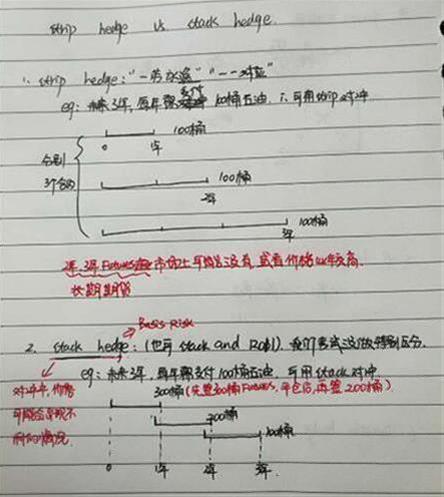 strip hedge vs stack hedge.
1. strip hedge: "一劳永逸" "一一对应"
eg: 未来3年, 每年需支付100桶石油, ∴可用strip对冲
100桶
0 1年
分别
3个合约
100桶
2年
100桶
3年
2年, 3年Futures 市场上可能会没有, 或者价格比较高.
长期期货
Basis Risk
2. stack hedge: (也叫 stack and Roll). 我们考试没做特别区分.
eg: 未来3年, 每年需支付100桶石油, 可用stack对冲.
300桶(先签300桶Futures, 平仓后, 再签200桶)
对冲中, 价格
可能会出现不
利的情况
200桶
100桶
0 1年 2年 3年